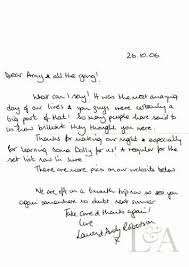 26.10.06
Dear Amy & all the gang!
What can I say! It was the most amazing
day of our lives & you guys were certainly a
big part of that! So many people have said to
us how brilliant they thought you were!
Thanks for making our night & especially
for learning some Dolly for us! A regular for the
set list now im sure
There are more pics on our website below
We are off on a 6 month trip now so see you
again somewhere no doubt next summer
Take care & thanks again!
Love
Laura & Andy Robertson
x